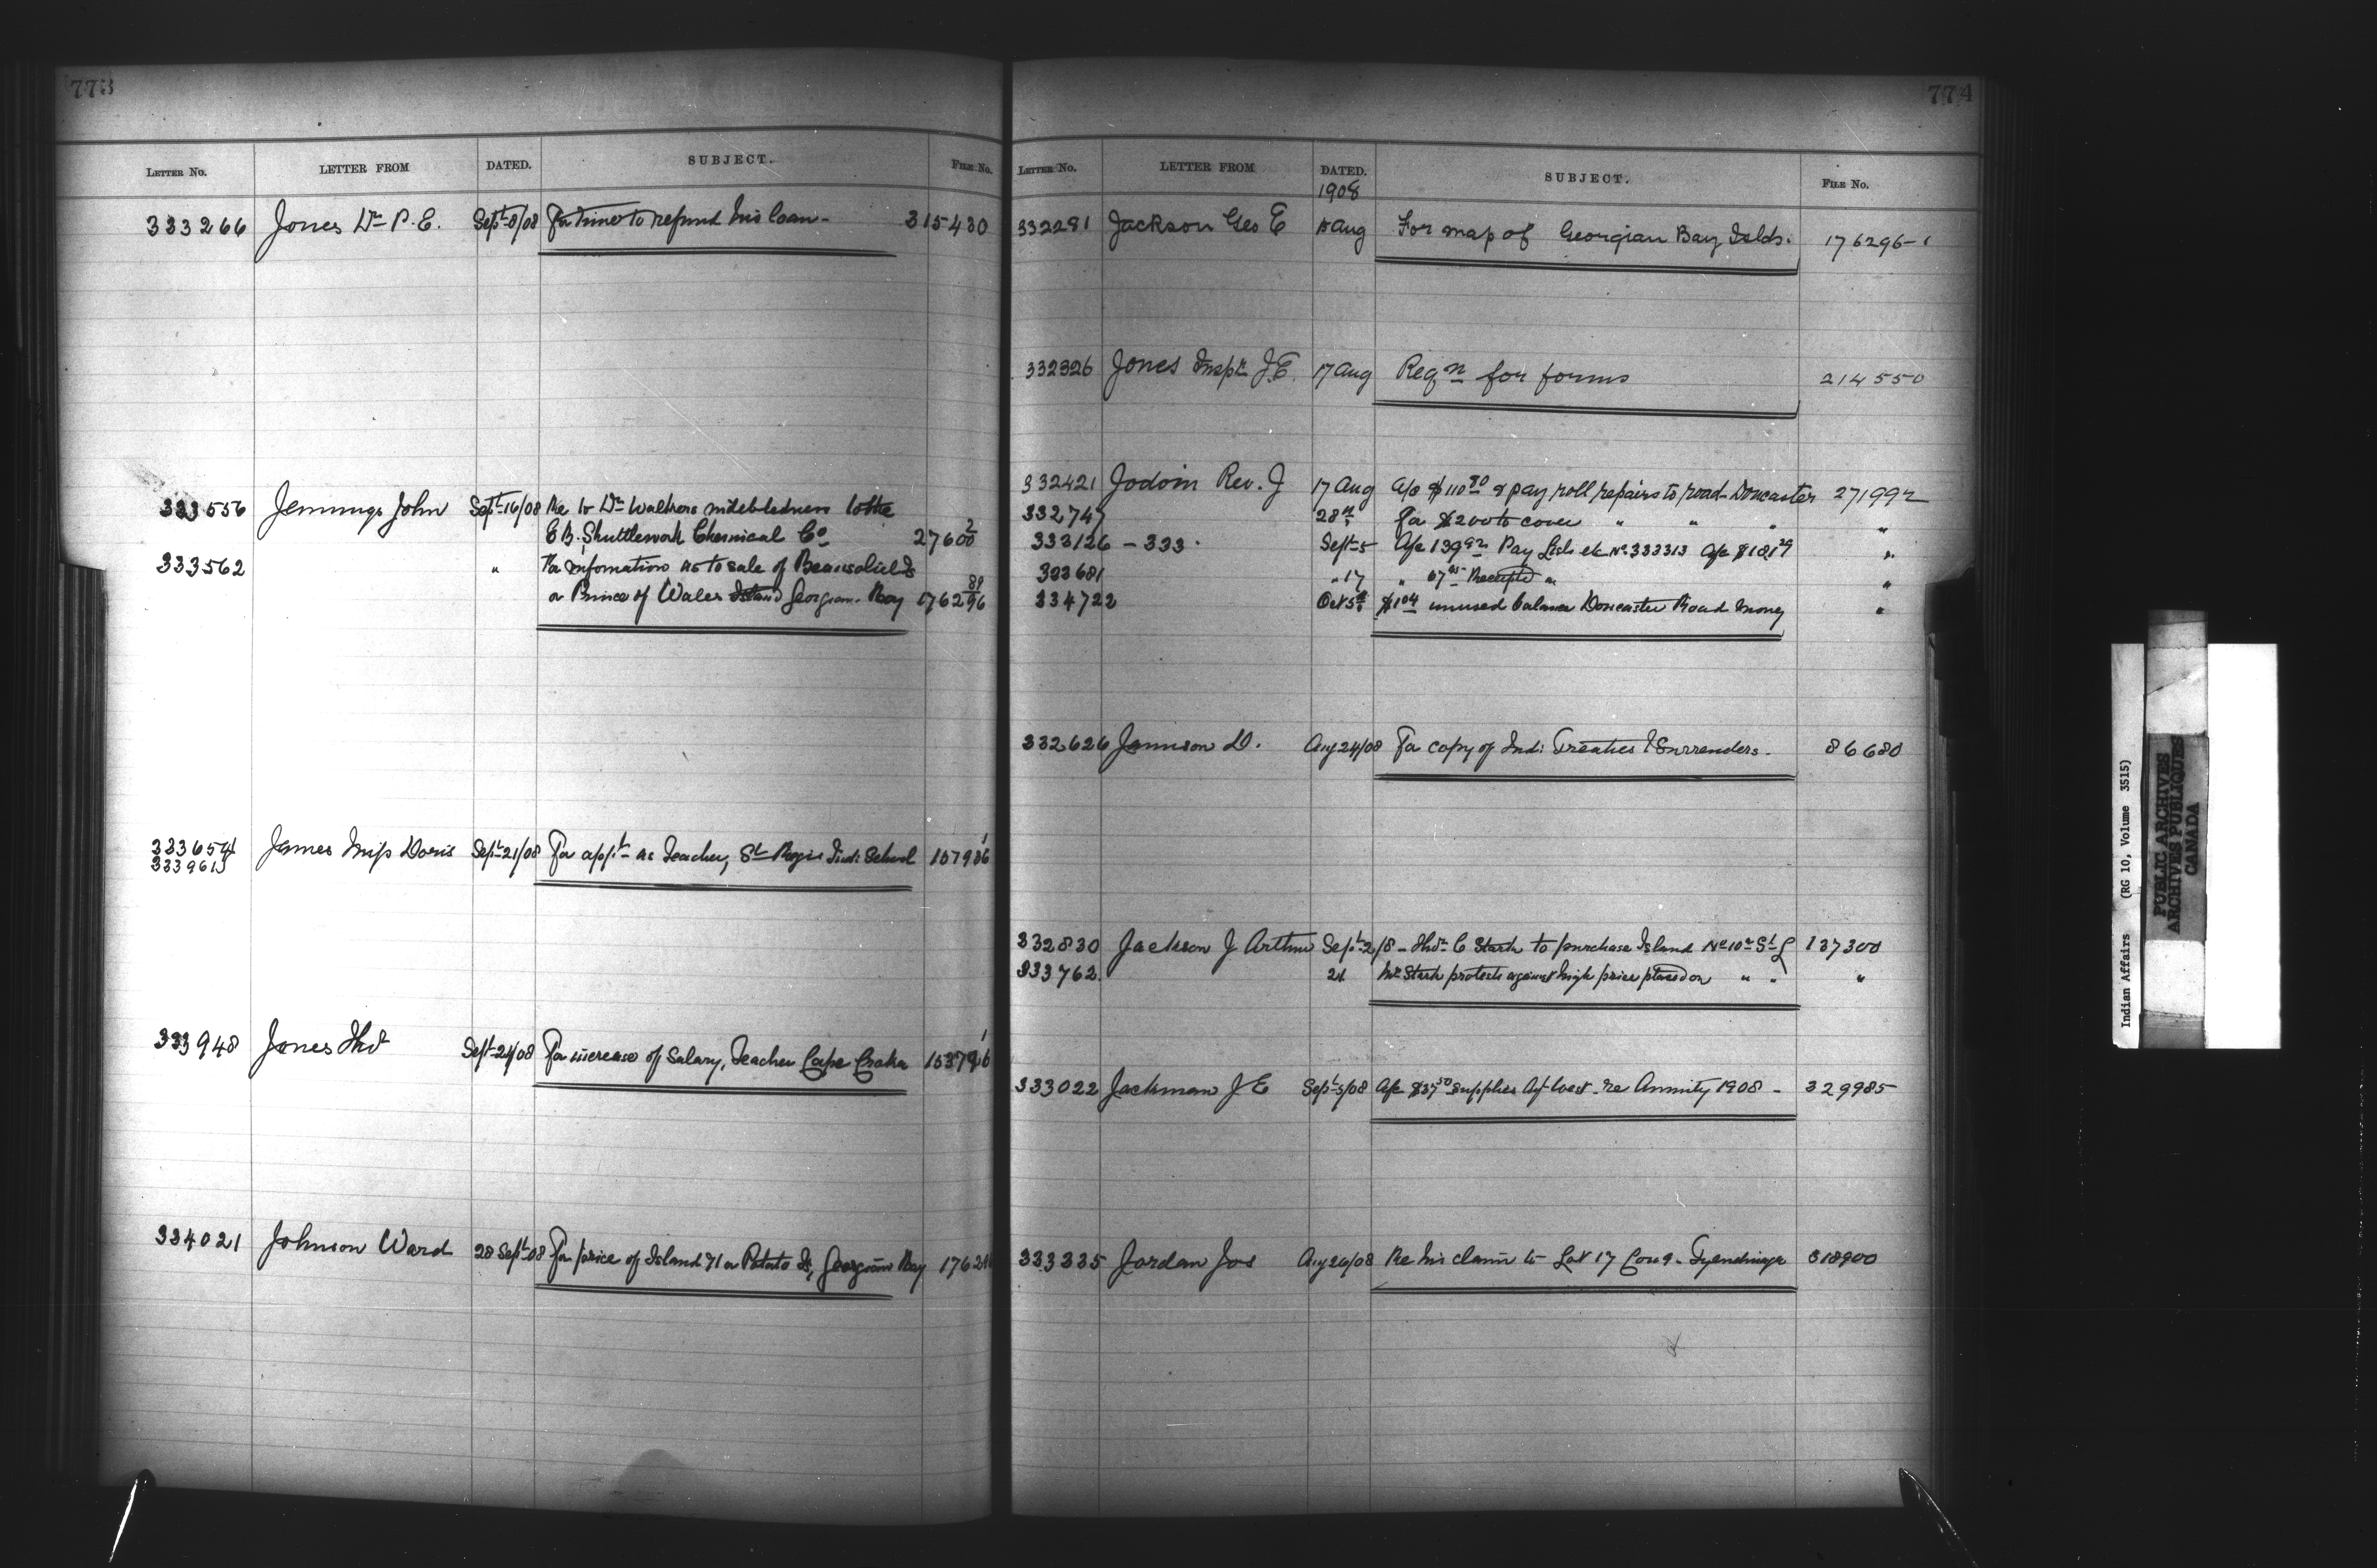 773
LETTER NO. LETTER FROM DATED. SUBJECT. FILE No.
333266 Jones Dr P. E. Sept 8/08 For time to refund his loan - 315430
333556 Jennings John Sept 16/08 Re to Dr Walkers indebtedness to the
E B. Shuttleworth Chemical Co 27600 2
333562 " For information as to sale of Beausoliel Is
or Prince of Wales Island Georgian Bay 176296 89
333654 James Miss Doris Sept 21/08 For appt as Teacher, St Regis Ind: School 157986 1
333961
333948 Jones Thos Sept 24/08 For increase of Salary, Teacher Cape Croker 153796 1
334021 Johnson Ward 28 Sept 08 For price of Island 71 or Potato Is, Georgian Bay
774
LETTER NO. LETTER FROM DATED. SUBJECT. FILE No.
1908
332281 Jackson Geo E 15 Aug For map of Georgian Bay Islds. 176296-1
332326 Jones Inspr J. E. 17 Aug Reqn for forms 214550
332421 Jodoin Rev. J 17 Aug A/c $110 80 & pay roll repairs to road - Doncaster 271992
332747 28th For $200 to cover " " " "
333126 - 333 . Sept 5 A/c 139 92 Pay Lists etc No. 333313 A/c $181 29 "
333681 " 17 " 67 Receipted " "
334722 Oct 5th $1 04 unused balance Doncaster Road money "
332626 Jamison D. Aug 24/08 For copy of Ind: Treaties & Surrenders. 86680
332830 Jackson J Arthur Sept 2/8 - Thos C Stark to purchase Island No 10 St L 137300
333762 21 Mr Stark protests against high price placed on " " "
333022 Jackman J E Sept 5/08 A/c $37 50 supplies re Annuity 1908 - 329985
333335 Jordan Jos Aug 26/08 Re his claim to Lot 17 Con 9 - Tyendinaga 318900
Indian Affairs (RG 10, Volume 3515)
PUBLIC ARCHIVES
ARCHIVES PUBLIQUES
CANADA